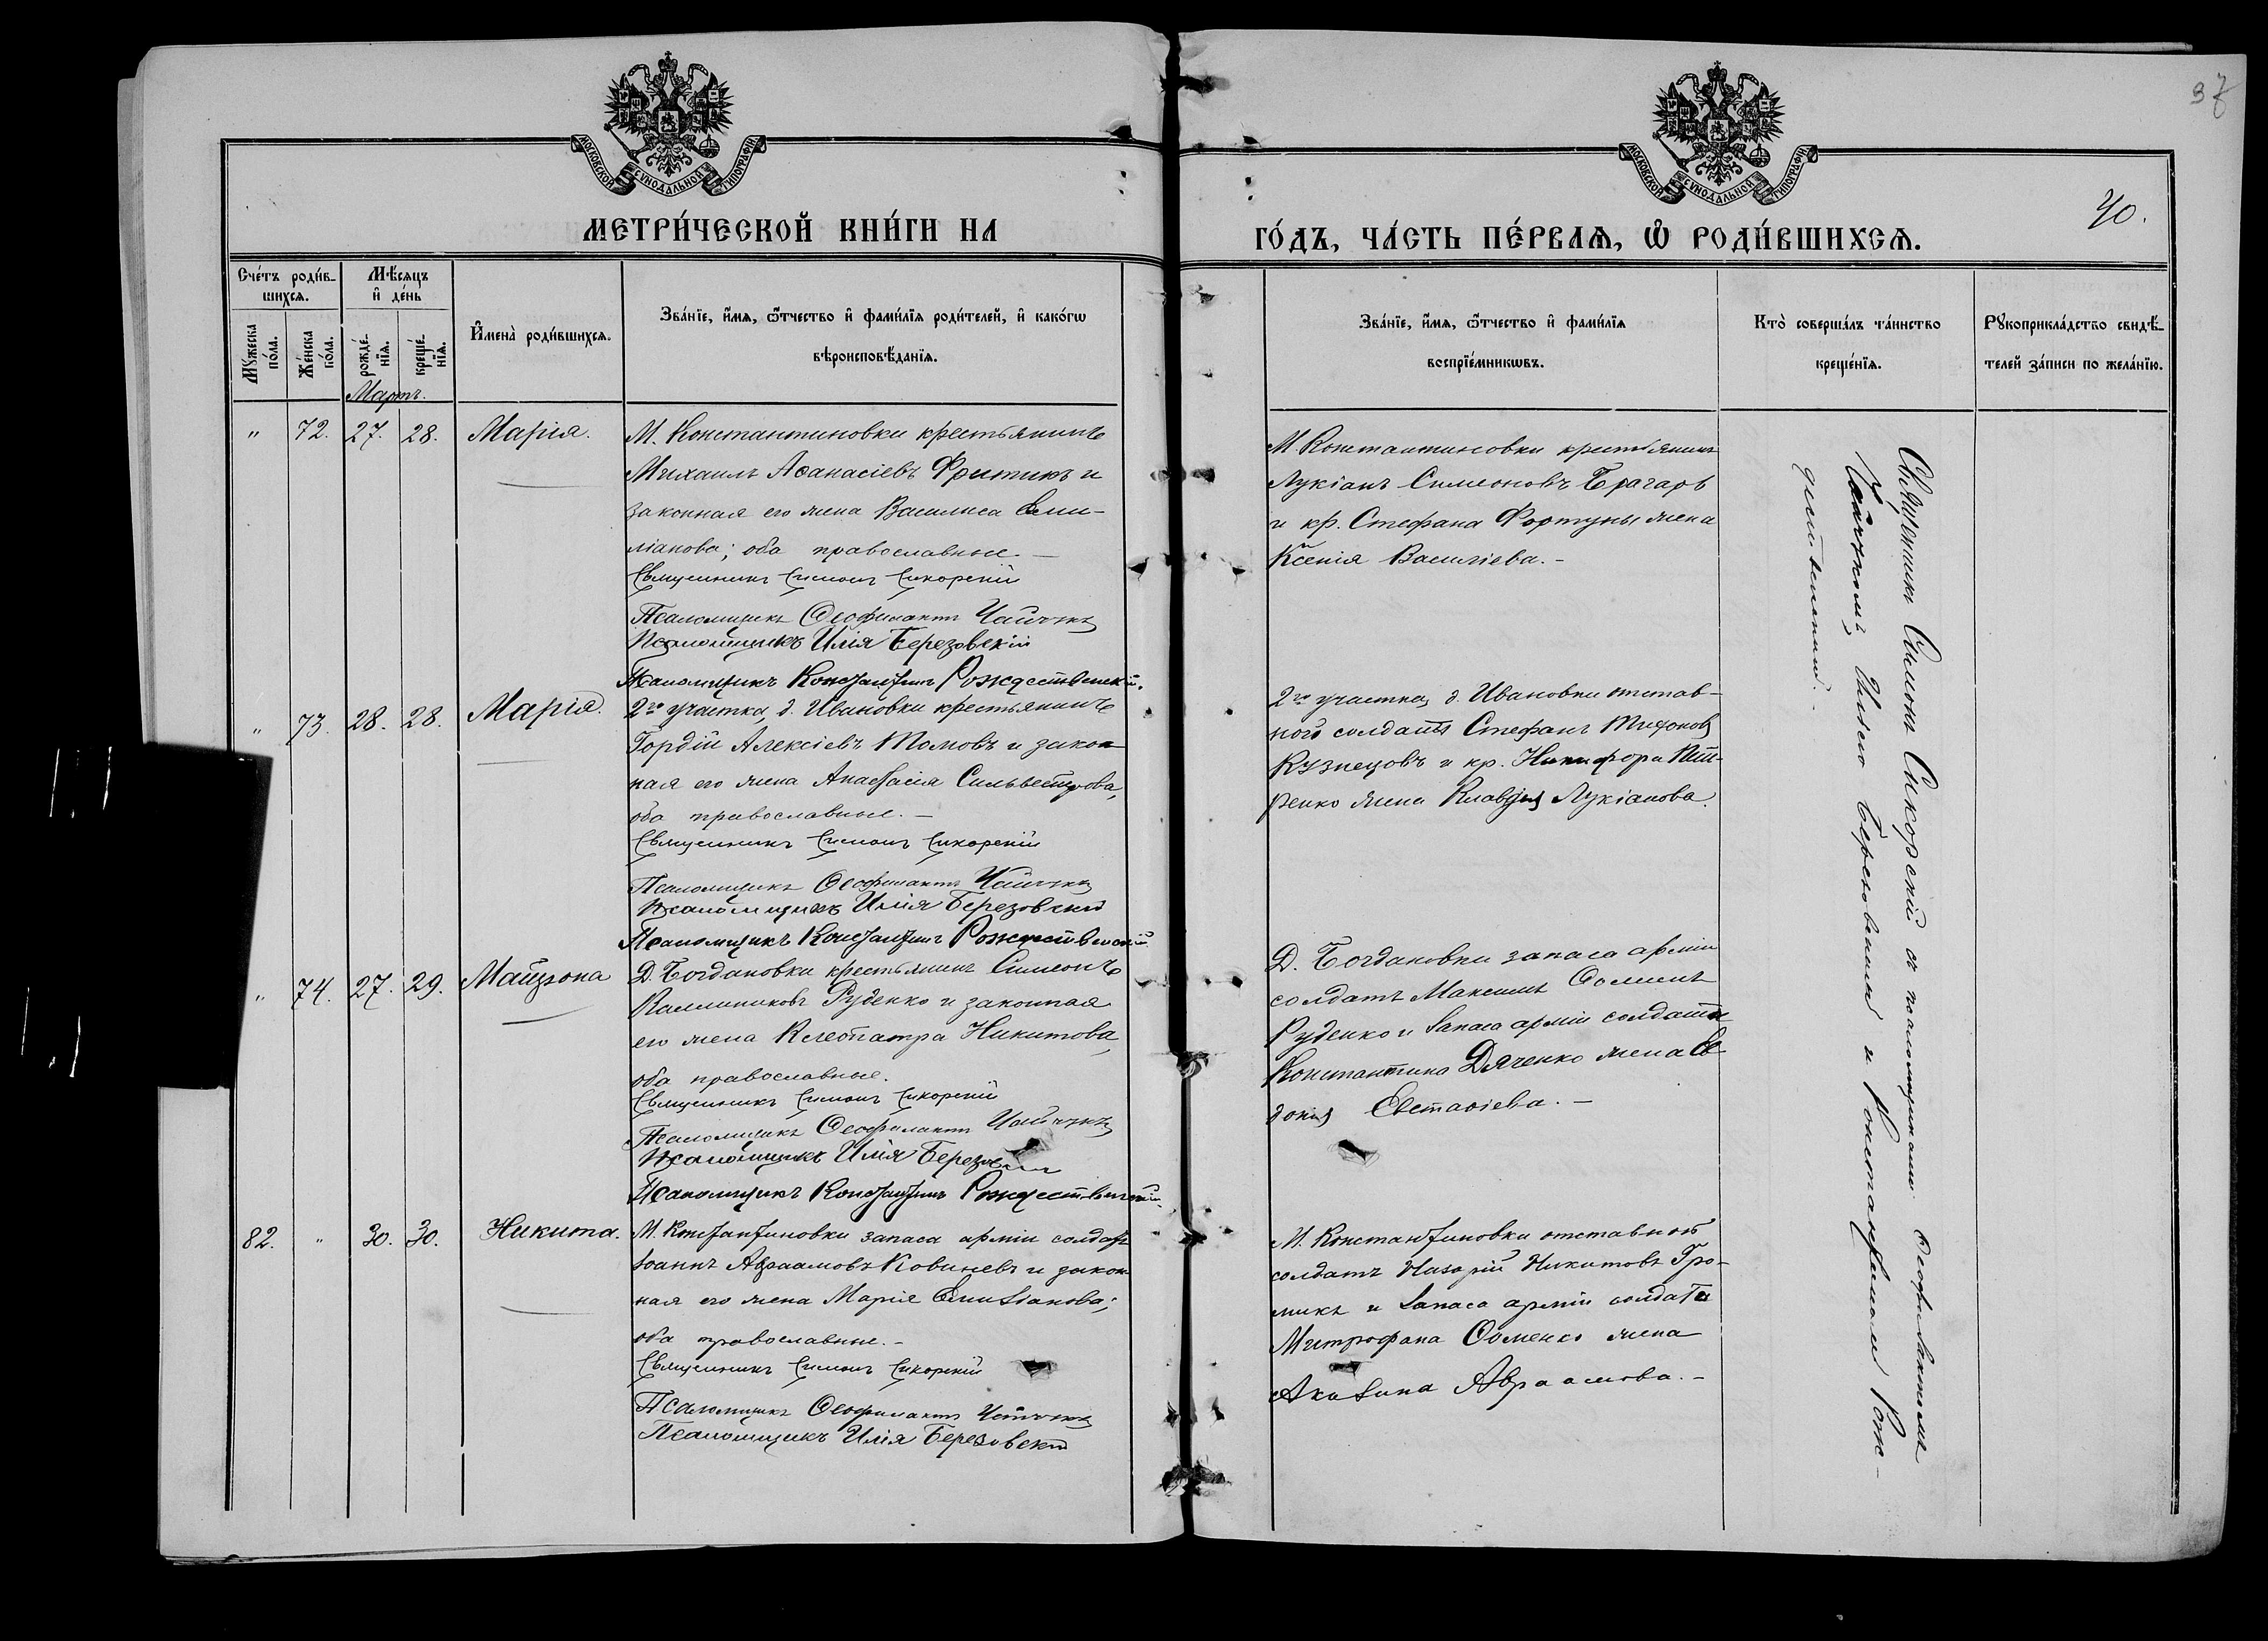 37
40.
МОСКОВСКОЙ СУНОДАЛЬНОЙ ТИПОГРАФІИ
МОСКОВСКОЙ СУНОДАЛЬНОЙ ТИПОГРАФІИ
МЕТРИ́ЧЕСКОЙ КНИ́ГИ НА
ГО́ДЪ, ЧА́СТЬ ПЕ́РВАѦ, Ѽ РОДИ́ВШИХСѦ.
Сче́тъ роди́в-
шихсѧ.
Мѣ́сяцъ
и де́нь
Мꙋжеска
по́ла.
Же́нска
по́ла.
рожде́-
нїѧ.
креще́-
нїѧ.
И҆мена̀ роди́вшихсѧ.
Зва́нїе, и҆́мѧ, ѻ҆́тчество и҆ фами́лїѧ роди́телей, и҆ како́гѡ
вѣроисповѣ́данїѧ.
Зва́нїе, и҆́мѧ, ѻ҆́тчество и҆ фами́лїѧ
воспрїе́мникѡвъ.
Кто̀ соверша́лъ та́инство
креще́нїѧ.
Рꙋкоприкла́дство свидѣ́-
телей за́писи по жела́нїю.
Мартъ.
" 72. 27. 28. Марія.
М. Константиновки крестьянинъ
Михаилъ Аѳанасіевъ Фритикъ и
законная его жена Василиса Еми-
ліанова; оба православные. —
Священникъ Симонъ Сикорскій
Псаломщикъ Ѳеофилактъ Чайчукъ
Псаломщикъ Илія Березовскій
Псаломщикъ Константинъ Рождественскій.
М Константиновки крестьянинъ
Лукіанъ Симеоновъ Брагарь
и кр. Стефана Фортуны жена
Ксенія Василіева. -
" 73. 28. 28. Марія.
2го участка, д. Ивановки крестьянинъ
Гордій Алексіевъ Томовъ и закон-
ная его жена Анастасія Сильвестрова,
оба православные. —
Священникъ Симонъ Сикорскій
Псаломщикъ Ѳеофилактъ Чайчукъ
Псаломщикъ Илія Березовскій
Псаломщикъ Константинъ Рождественскій
2го участка, д. Ивановки отстав-
ной солдатъ Стефанъ
Кузнецовъ и кр. Никифора
ренко жена Клавдія Лукіанова.
" 74. 27. 29. Матрона
Д. Богдановки крестьянинъ Симеонъ
Каллиниковъ Руденко и законная
его жена Клеопатра Никитова,
оба православные.
Священникъ Симонъ Сикорскій
Псаломщикъ Ѳеофилактъ Чайчукъ
Псаломщикъ Илія Березовскій
Псаломщикъ Константинъ Рождественскій
Д. Богдановки запаса арміи
солдатъ Максимъ Ѳоминъ
Руденко и запаса арміи солдата
Константина Дяченко жена Ев-
докія Евстаѳіева. —
82. " 30. 30. Никита.
М. Константиновки запаса арміи солдатъ
Іоаннъ Авраамовъ Ковалевъ и закон-
ная его жена Марія Емиліанова;
оба православные. -
Священникъ Симонъ Сикорскій
Псаломщикъ Ѳеофилактъ Чайчукъ
Псаломщикъ Илія Березовскій
М. Константиновки отставной
солдатъ Назарій Никитовъ Гро-
микъ и запаса арміи солдата
Митрофана Ѳоменко жена
Акилина Авраамова. -
Священникъ Симонъ Сикорскій съ псаломщиками Ѳеофилактомъ
Чайчукомъ, Иліею Березовскимъ и Константиномъ Рож-
дественскимъ.